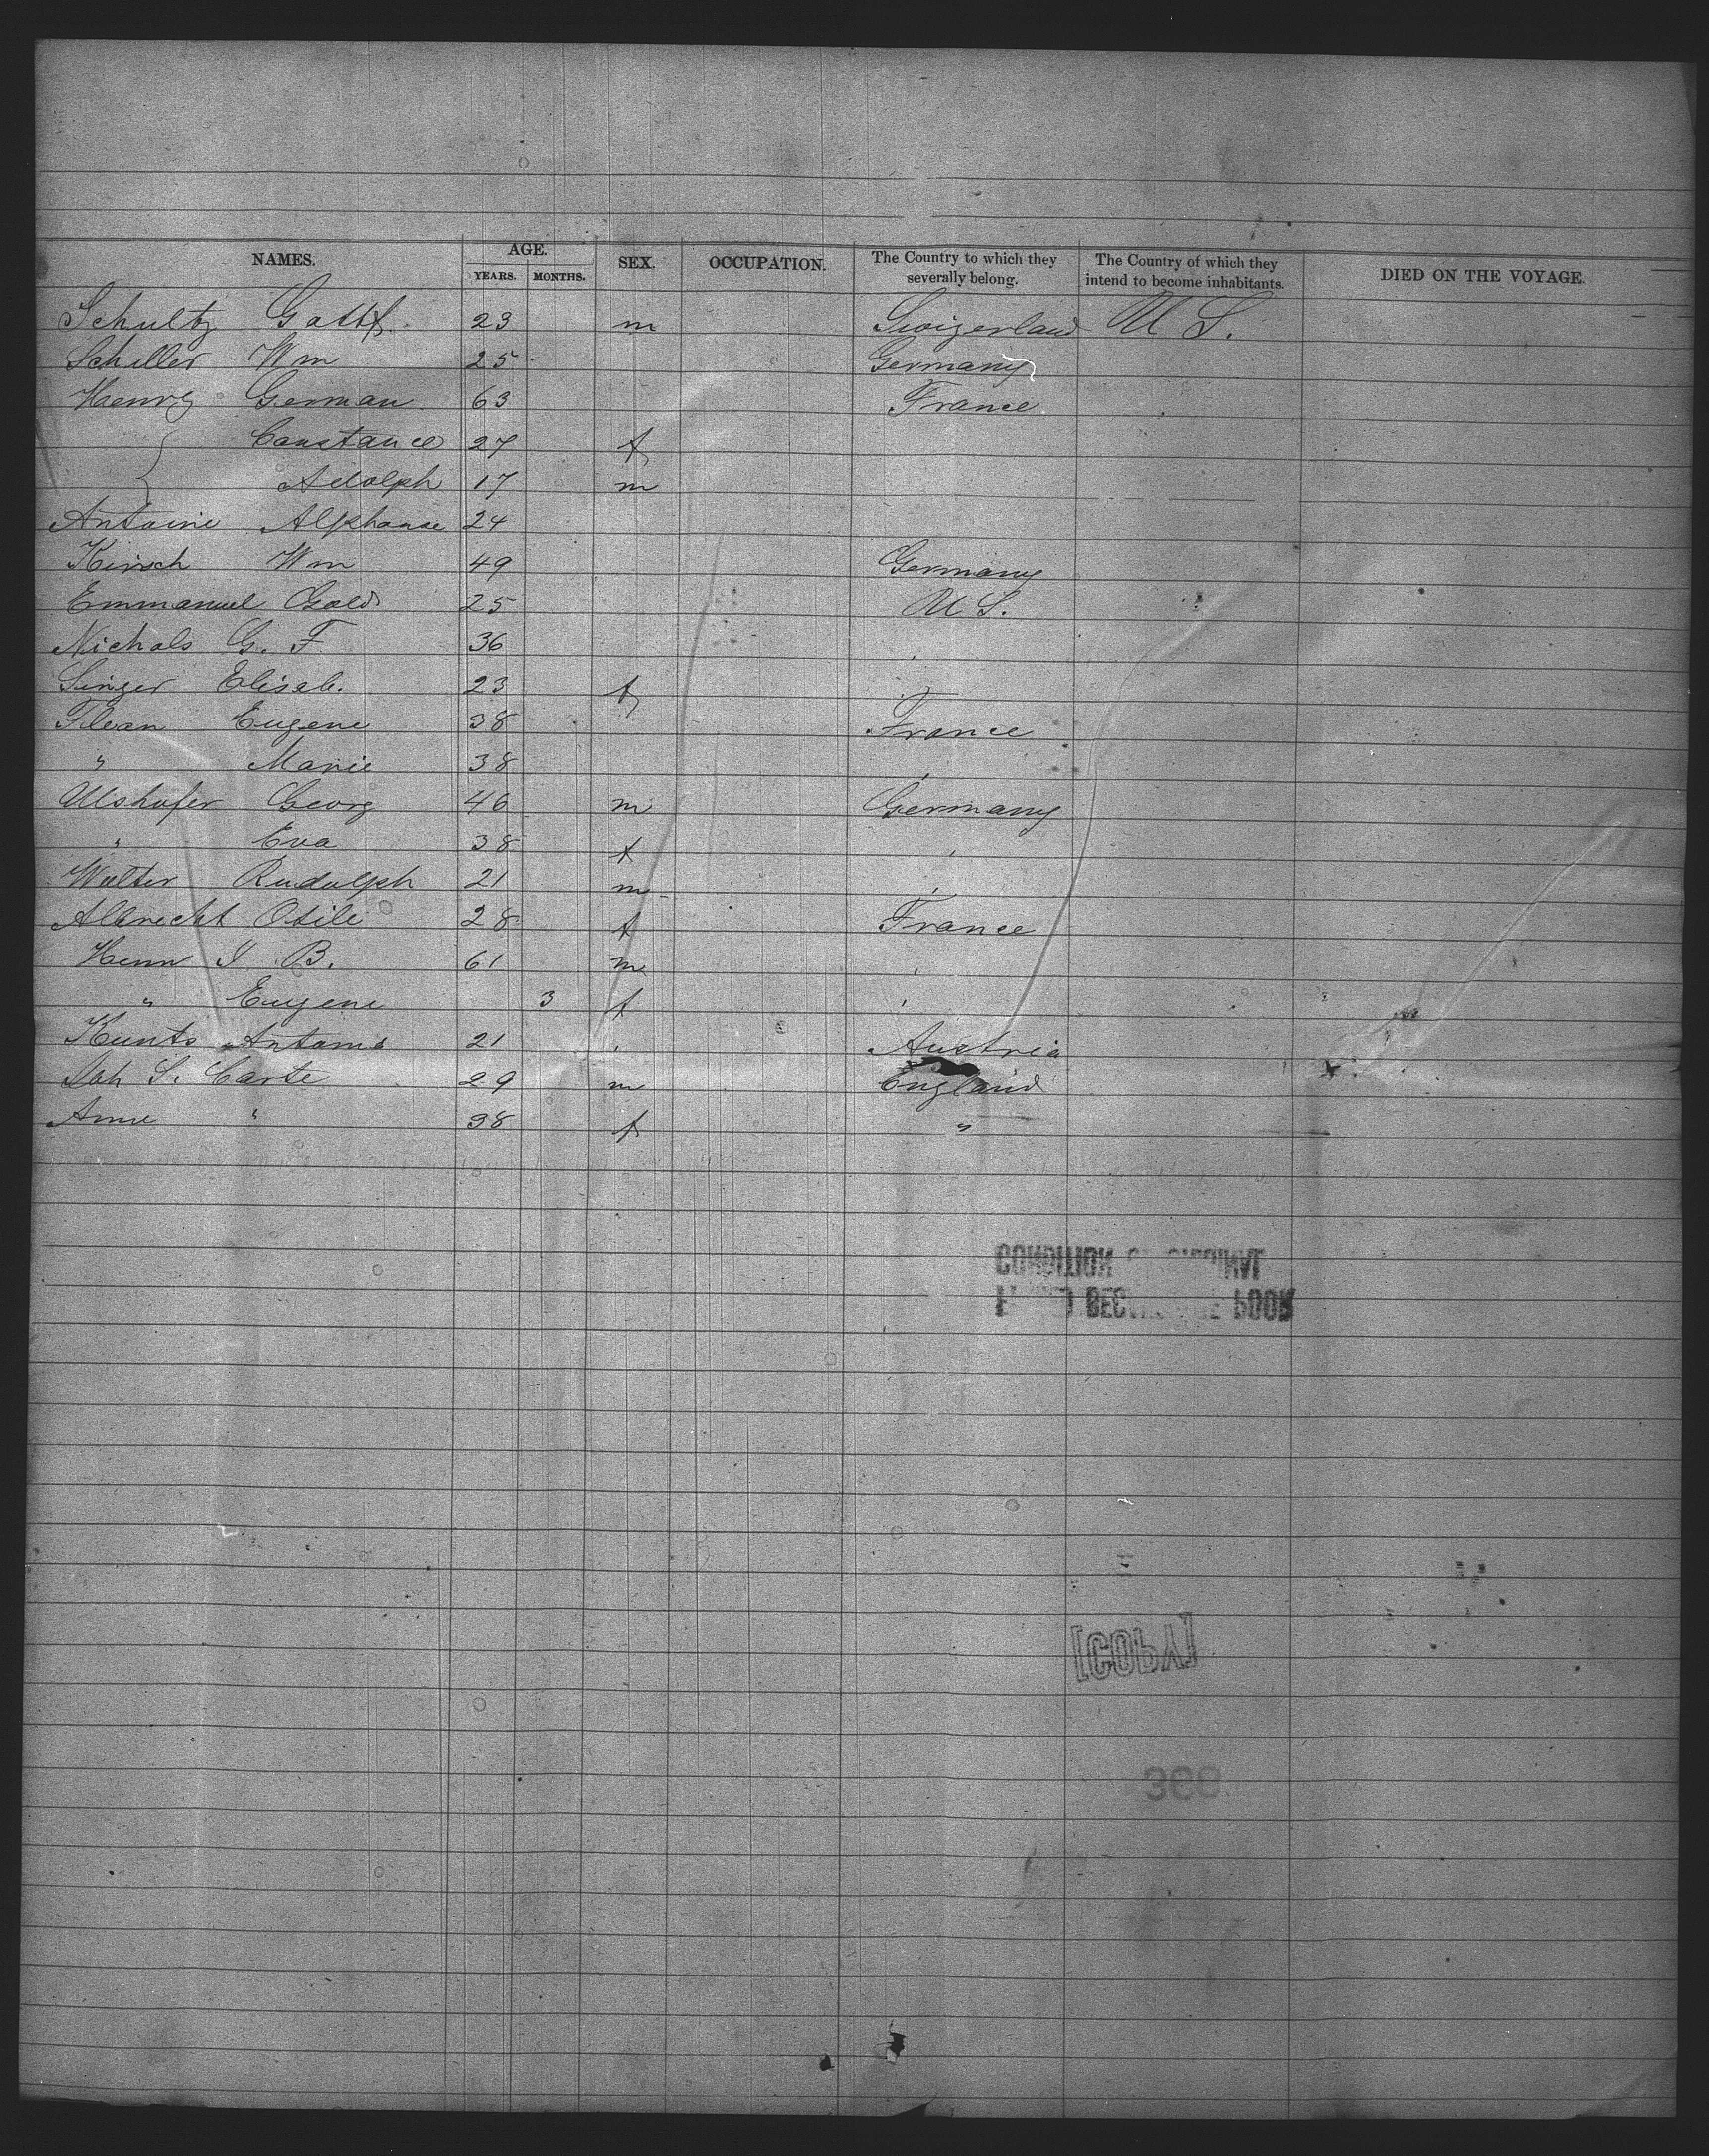 NAMES. AGE. YEARS. MONTHS. SEX. OCCUPATION. The Country to which they severally belong. The Country of which they intend to become inhabitants. DIED ON THE VOYAGE.
Schultz Gottf. 23 m Swizerland U S.
Schiller Wm 25 Germany
Henry German 63 France
Constance 27 f
Adolph 17 m
Antoine Alphonse 24
Kirsch Wm 49 Germany
Emmanuel Gold 25 U S.
Nichols G. F 36 "
Singer Elisab. 23 f "
Eugene 38 France
" Marie 38 "
Georg 46 m Germany
" Eva 38 f "
Walter Rudolph 21 m "
Albrecht Otili 28 f France
Henn J. B. 61 m "
" Eugene 3 f "
Kunts Antonia 21 " Austria
Joh S. Carte 29 m England
Anne " 38 f "
[COPY]